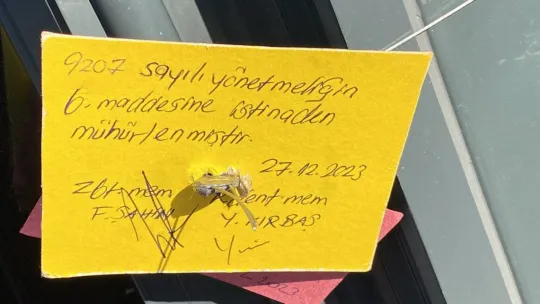 9207 sayılı yönetmeliğin
6. maddesine istinaden
mühürlenmiştir.
27.12.2023
Zbt mem ent mem
F. ŞAHİN Y. KIRBAŞ
2023